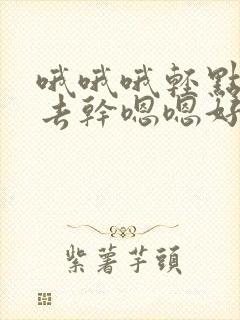 哦哦哦輕點
去幹嗯嗯好
紫薯芋頭